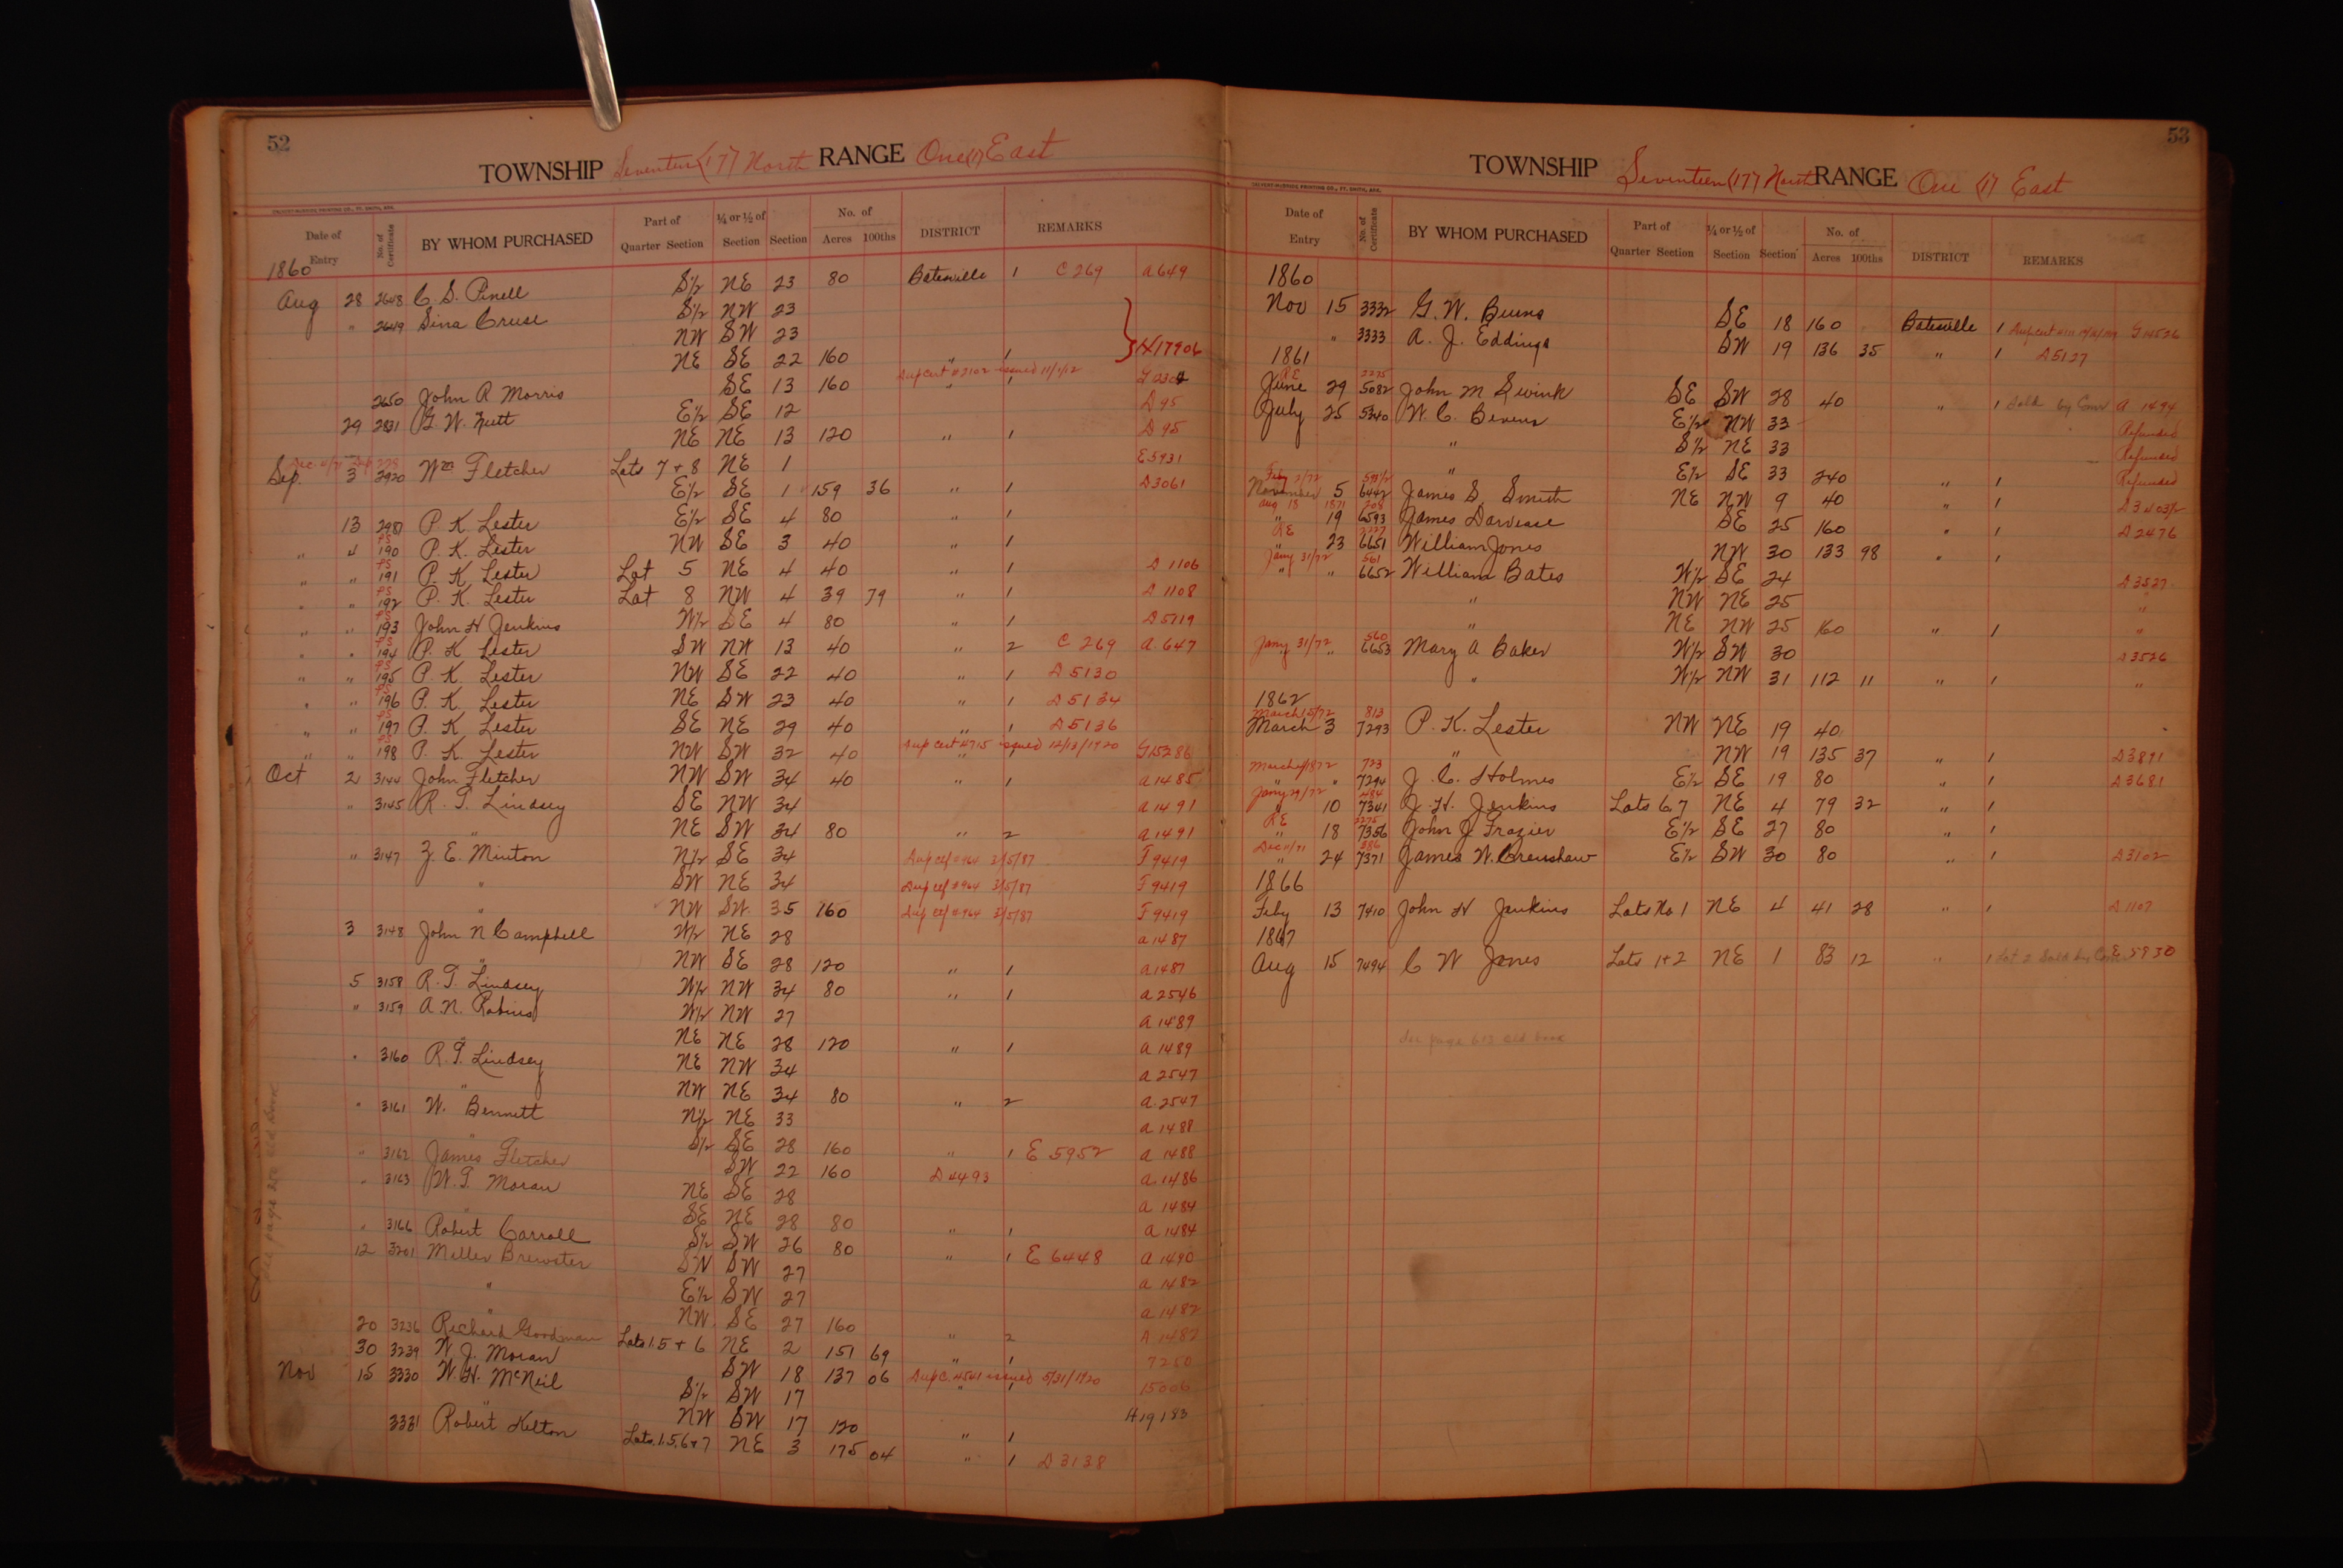 52
TOWNSHIP Seventeen (17) North RANGE One (1) East
CALVERT-McBRIDE PRINTING CO., FT. SMITH, ARK.
Date of Entry No. of Certificate BY WHOM PURCHASED Part of Quarter Section ¼ or ½ of Section Section No. of Acres 100ths DISTRICT REMARKS
1860
Aug 28 2648 C. S. Pinell S½ NE 23 80 Batesville 1 C 269 A 649
" 2649 Sina Cruse S½ NW 23
NW SW 23
NE SE 22 160 " 1 H17906
2650 John R Morris SE 13 160 Dup Cert #2102 issued 11/1/12 " 1
29 2831 G. W. Nutt E½ SE 12 D 95
NE NE 13 120 " 1 D 95
Sep 3 2920 Wm Fletcher Lots 7 + 8 NE 1 E5931
E½ SE 1 159 36 " 1 D3061
13 2987 P. K. Lester E½ SE 4 80 " 1
" 4 PS 190 P. K. Lester NW SE 3 40 " 1
" " PS 191 P. K. Lester Lot 5 NE 4 40 " 1 D 1106
" " PS 192 P. K. Lester Lot 8 NW 4 39 79 " 1 D 1108
" " PS 193 John H Jenkins W½ SE 4 80 " 1 D5719
" " PS 194 P. K Lester SW NW 13 40 " 2 C 269 A. 647
" " PS 195 P. K. Lester NW SE 22 40 " 1 D5130
" " PS 196 P. K. Lester NE SW 23 40 " 1 D5134
" " PS 197 P. K. Lester SE NE 29 40 " 1 D5136
" " PS 198 P. K Lester NW SW 32 40 Dup Cert #715 issued 12/13/1920 " 1 G15286
Oct 2 3144 John Fletcher NW SW 34 40 " 1 A 1485
" 3145 R. T. Lindsey SE NW 34 A 1491
" NE SW 34 80 " 2 A 1491
" 3147 Z. E. Minton N½ SE 34 Dup cef #964 3/5/87 F 9419
" SW NE 34 Dup cef #964 3/5/87 F 9419
" NW SW 35 160 Dup cef #964 3/5/87 F 9419
3 3148 John N Campbell W½ NE 28 A 1487
" NW SE 28 120 " 1 A 1487
5 3158 R. T. Lindsey W½ NW 34 80 " 1 A 2546
" 3159 A. N. Robins W½ NW 27 A 1489
" NE NE 28 120 " 1 A 1489
" 3160 R. T. Lindsey NE NW 34 A 2547
" NW NE 34 80 " 2 A 2547
" 3161 W. Bennett N½ NE 33 A 1488
" S½ SE 28 160 " 1 E 5952 A 1488
" 3162 James Fletcher SW 22 160 D 4493 A 1486
" 3163 W. T. Moran NE SE 28 A 1484
" SE NE 28 80 " 1 A 1484
" 3166 Robert Carroll S½ SW 26 80 " 1 E 6448 A 1490
12 3201 Miller Brewster SW SW 27 A 1482
" E½ SW 27 A 1482
" NW SE 27 160 " 2 A 1482
20 3236 Richard Goodman Lots 1.5 + 6 NE 2 151 69 " 1 7250
30 3239 W. J. Moran SW 18 137 06 Dup C. 4561 issued 5/31/1920 " 1 15006
Nov 15 3330 W. H. McNeil S½ SW 17
" NW SW 17 120 " 1 H19183
3331 Robert Kelton Lots 1.5.6+7 NE 3 175 04 " 1 D 3138
53
TOWNSHIP Seventeen (17) North RANGE One (1) East
CALVERT-McBRIDE PRINTING CO., FT. SMITH, ARK.
Date of Entry No. of Certificate BY WHOM PURCHASED Part of Quarter Section ¼ or ½ of Section Section No. of Acres 100ths DISTRICT REMARKS
1860
Nov 15 3332 G. W. Burns SE 18 160 Batesville 1
" 3333 A. J. Eddings SW 19 136 35 " 1 D5127
1861
June RE 29 2275 5082 John M Swink SE SW 28 40 " 1 Sold by Com A 1494
July 25 5340 W. C. Bevens E½ NW 33 Refunded
" S½ NE 33 Refunded
" E½ SE 33 240 " 1 Refunded
November 5 6442 James S. Smith NE NW 9 40 " 1
Aug 18 1871 208
" 19 6593 James Darvease SE 25 160 " 1 D2476
RE 2227
" 23 6651 William Jones NW 30 133 98 " 1
Jany 31/72 561
" " 6652 William Bates W½ SE 24 D3527
" NW NE 25 "
" NE NW 25 160 " 1 "
Jany 31/72 " 560 6653 Mary A Baker W½ SW 30 D3526
" W½ NW 31 112 11 " 1 "
1862
March 15/72 813
March 3 7293 P. K. Lester NW NE 19 40
" NW 19 135 37 " 1 D3891
723
" " 7294 J. C. Holmes E½ SE 19 80 " 1 D3681
Jany 29/72 484
" 10 7341 J. H. Jenkins Lots 6 7 NE 4 79 32 " 1
RE 2275
" 18 7356 John J. Frazier E½ SE 27 80 " 1
Dec 11/71 386
" 24 7371 James W. Crenshaw E½ SW 30 80 " 1 D3102
1866
Feby 13 7410 John H Jenkins Lots No 1 NE 4 41 28 " 1 D1107
1867
Aug 15 7494 C W Jones Lots 1+2 NE 1 83 12 " 1 Lot 2 Sold by Com E 5930
See page 613 old book